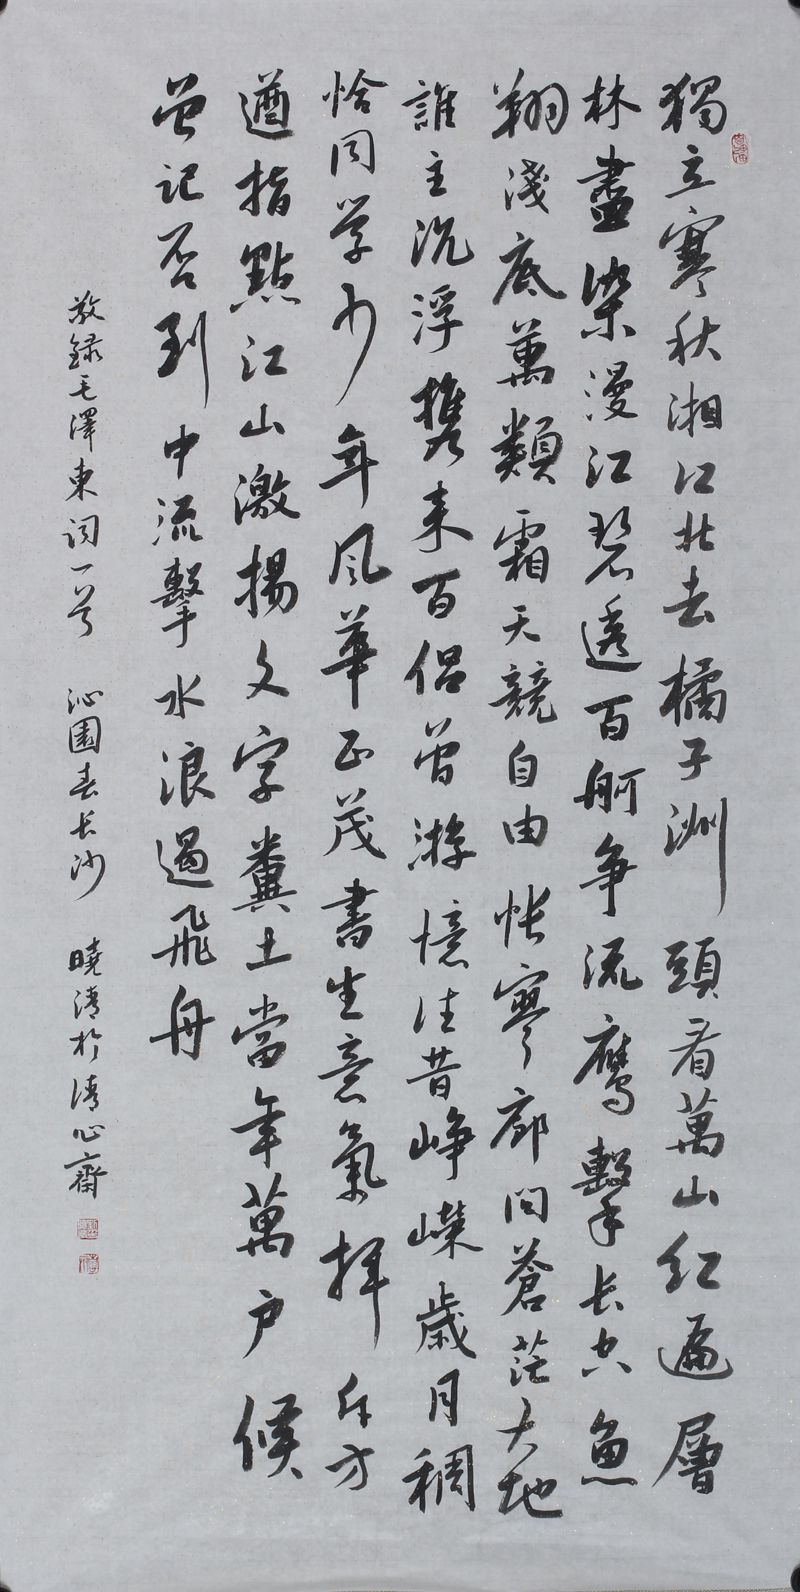 獨立寒秋湘江北去橘子洲頭看萬山紅遍層
林盡染漫江碧透百舸争流鷹擊长空魚
翔淺底萬類霜天競自由帐寥廓问蒼茫大地
誰主沉浮携来百侣曾游憶往昔峥嵘歲月稠
恰同学少年风華正茂書生意氣挥斥方
遒指點江山激揚文字糞土當年萬户候
曾记否到中流擊水浪遏飛舟
敬録毛澤東词一首 沁園春长沙 曉清於清心齋